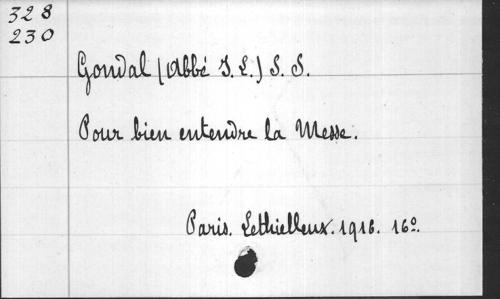 328
230
Gondal (Abbé I. L.) S. S.
Pour bien entendre la Messe.
Paris. Lethielleux. 1916. 16º.